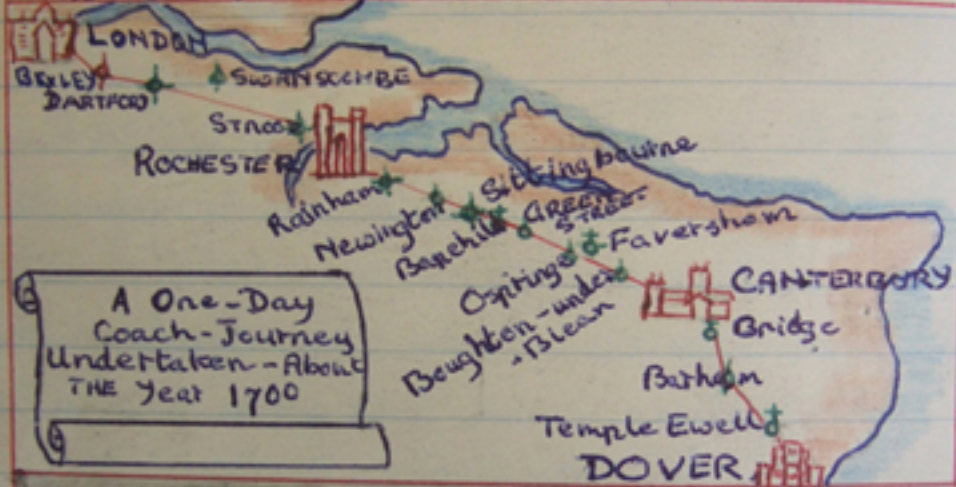 LONDON
BEXLEY
DARTFORD
SWANSCOMBE
STROOD
ROCHESTER
Rainham
Newington
Sittingbourne
Bapchild
GREEN
STREET
Ospringe
Faversham
Boughton-under
-Blean
CANTERBURY
Bridge
Barham
Temple Ewell
DOVER
A One-Day
Coach-Journey
Undertaken-About
THE Year 1700